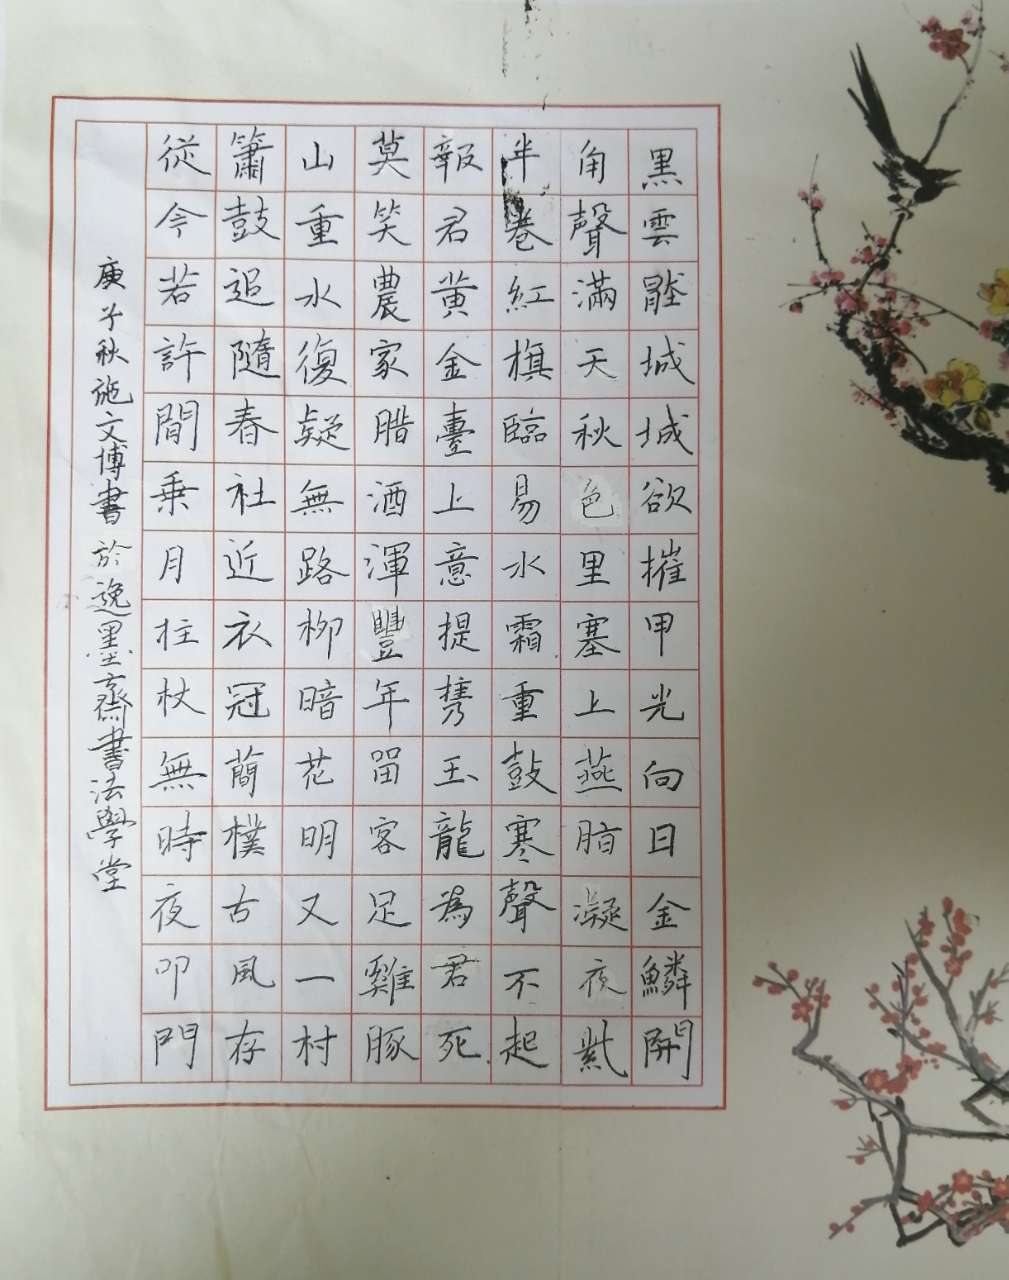 黑雲壓城城欲摧甲光向日金鱗開
角聲滿天秋色里塞上燕脂凝夜紫
半卷紅旗臨易水霜重鼓寒聲不起
報君黃金臺上意提携玉龍為君死
莫笑農家腊酒渾豐年留客足雞豚
山重水復疑無路柳暗花明又一村
簫鼓追隨春社近衣冠簡樸古風存
從今若許閒乗月拄杖無時夜叩門
庚子秋施文博書於逸墨齋書法學堂